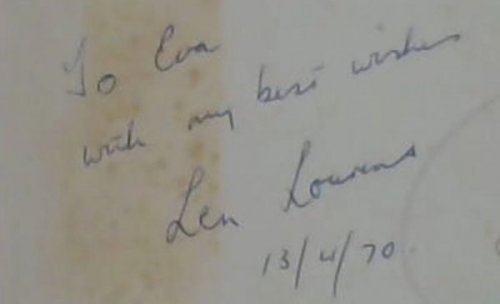 To Eva
with my best wishes
Len Lourens
13/4/70